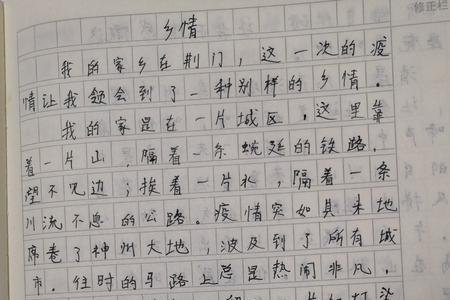 修正栏
乡情
我的家乡在荆门，这一次的疫
情让我领会到了一种别样的乡情。
我的家是在一片城区，这里靠
着一片山，隔着一条蜿蜒的铁路，
望不见边；挨着一片水，隔着一条
川流不息的公路。疫情突如其来地
席卷了神州大地，波及到了所有城
市。往时的马路上总是热闹非凡，